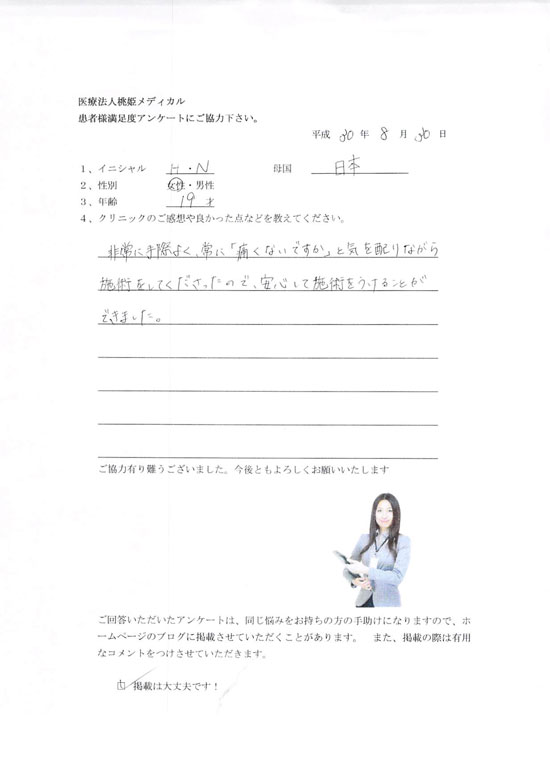 医療法人桃姫メディカル
患者様満足度アンケートにご協力下さい。
平成 30 年 8 月 30 日
1、イニシャル H・N 母国 日本
2、性別 女性・男性
3、年齢 19 才
4、クリニックのご感想や良かった点などを教えてください。
非常に手際よく、常に「痛くないですか」と気を配りながら
施術をしてくださったので、安心して施術をうけることが
できました。
ご協力有り難うございました。今後ともよろしくお願いいたします
ご回答いただいたアンケートは、同じ悩みをお持ちの方の手助けになりますので、ホ
ームページのブログに掲載させていただくことがあります。 また、掲載の際は有用
なコメントをつけさせていただきます。
掲載は大丈夫です！